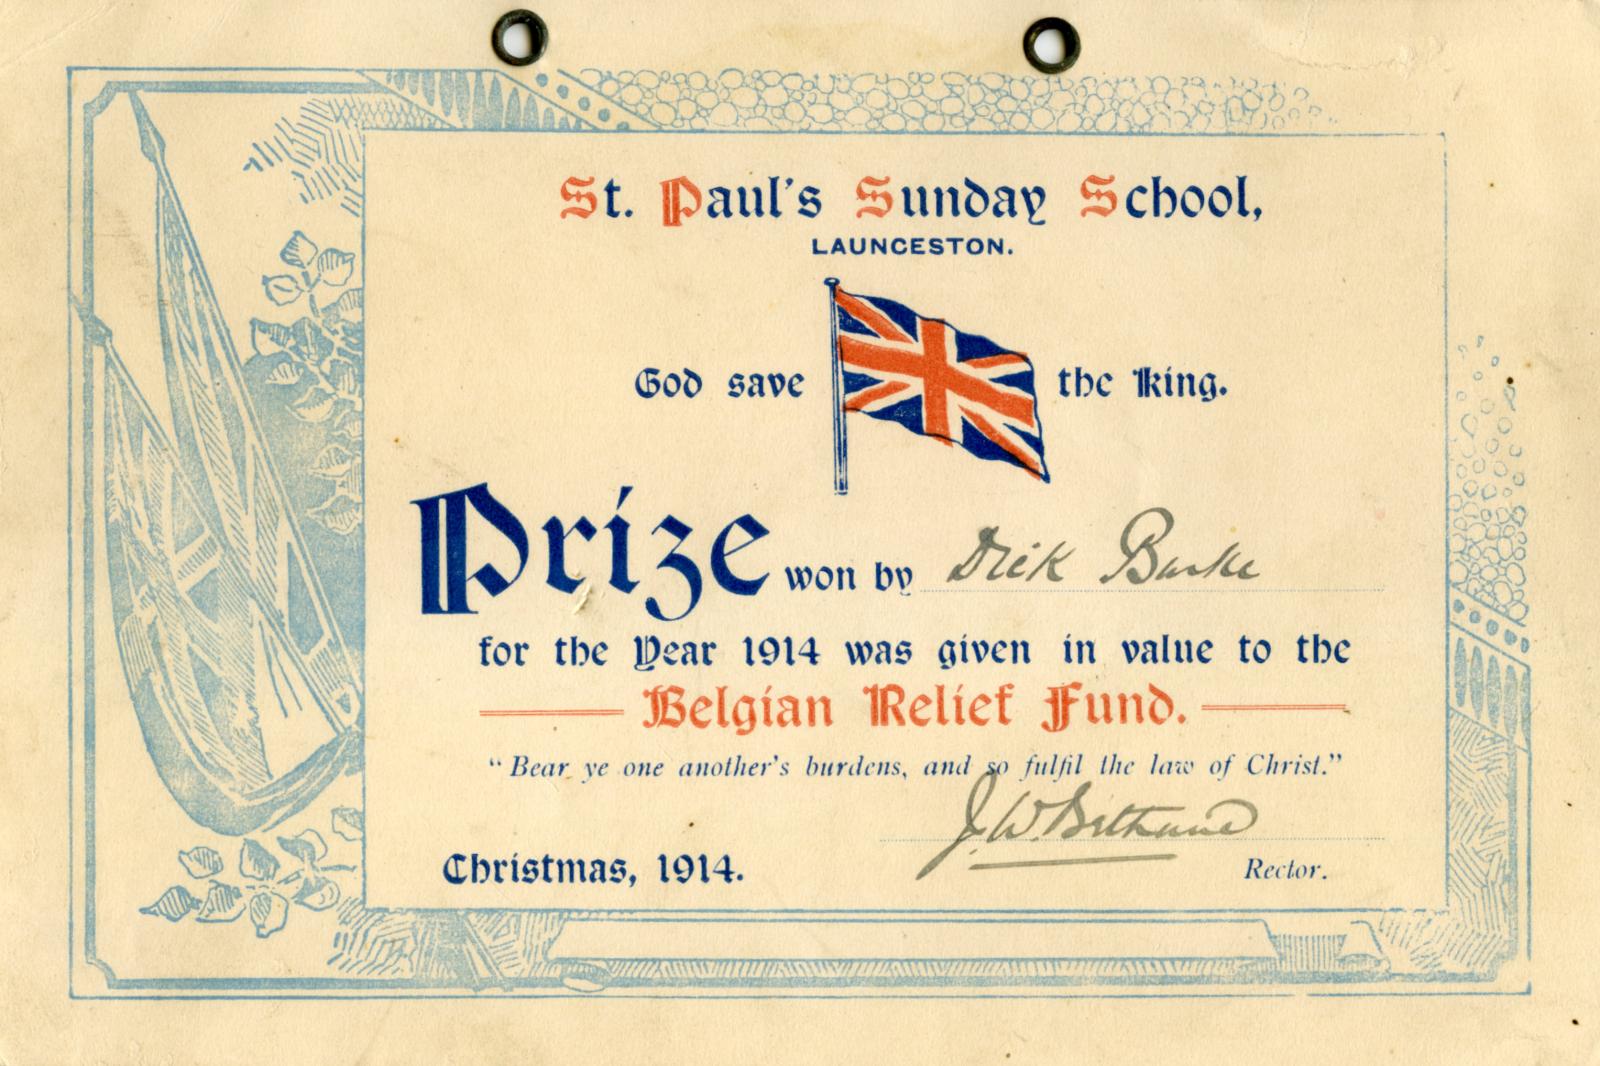 St. Paul's Sunday School,
LAUNCESTON.
God save the King.
Prize won by Dick Burke
for the Year 1914 was given in value to the
Belgian Relief Fund.
"Bear ye one another's burdens, and so fulfil the law of Christ."
J. W. Bethune
Christmas, 1914. Rector.